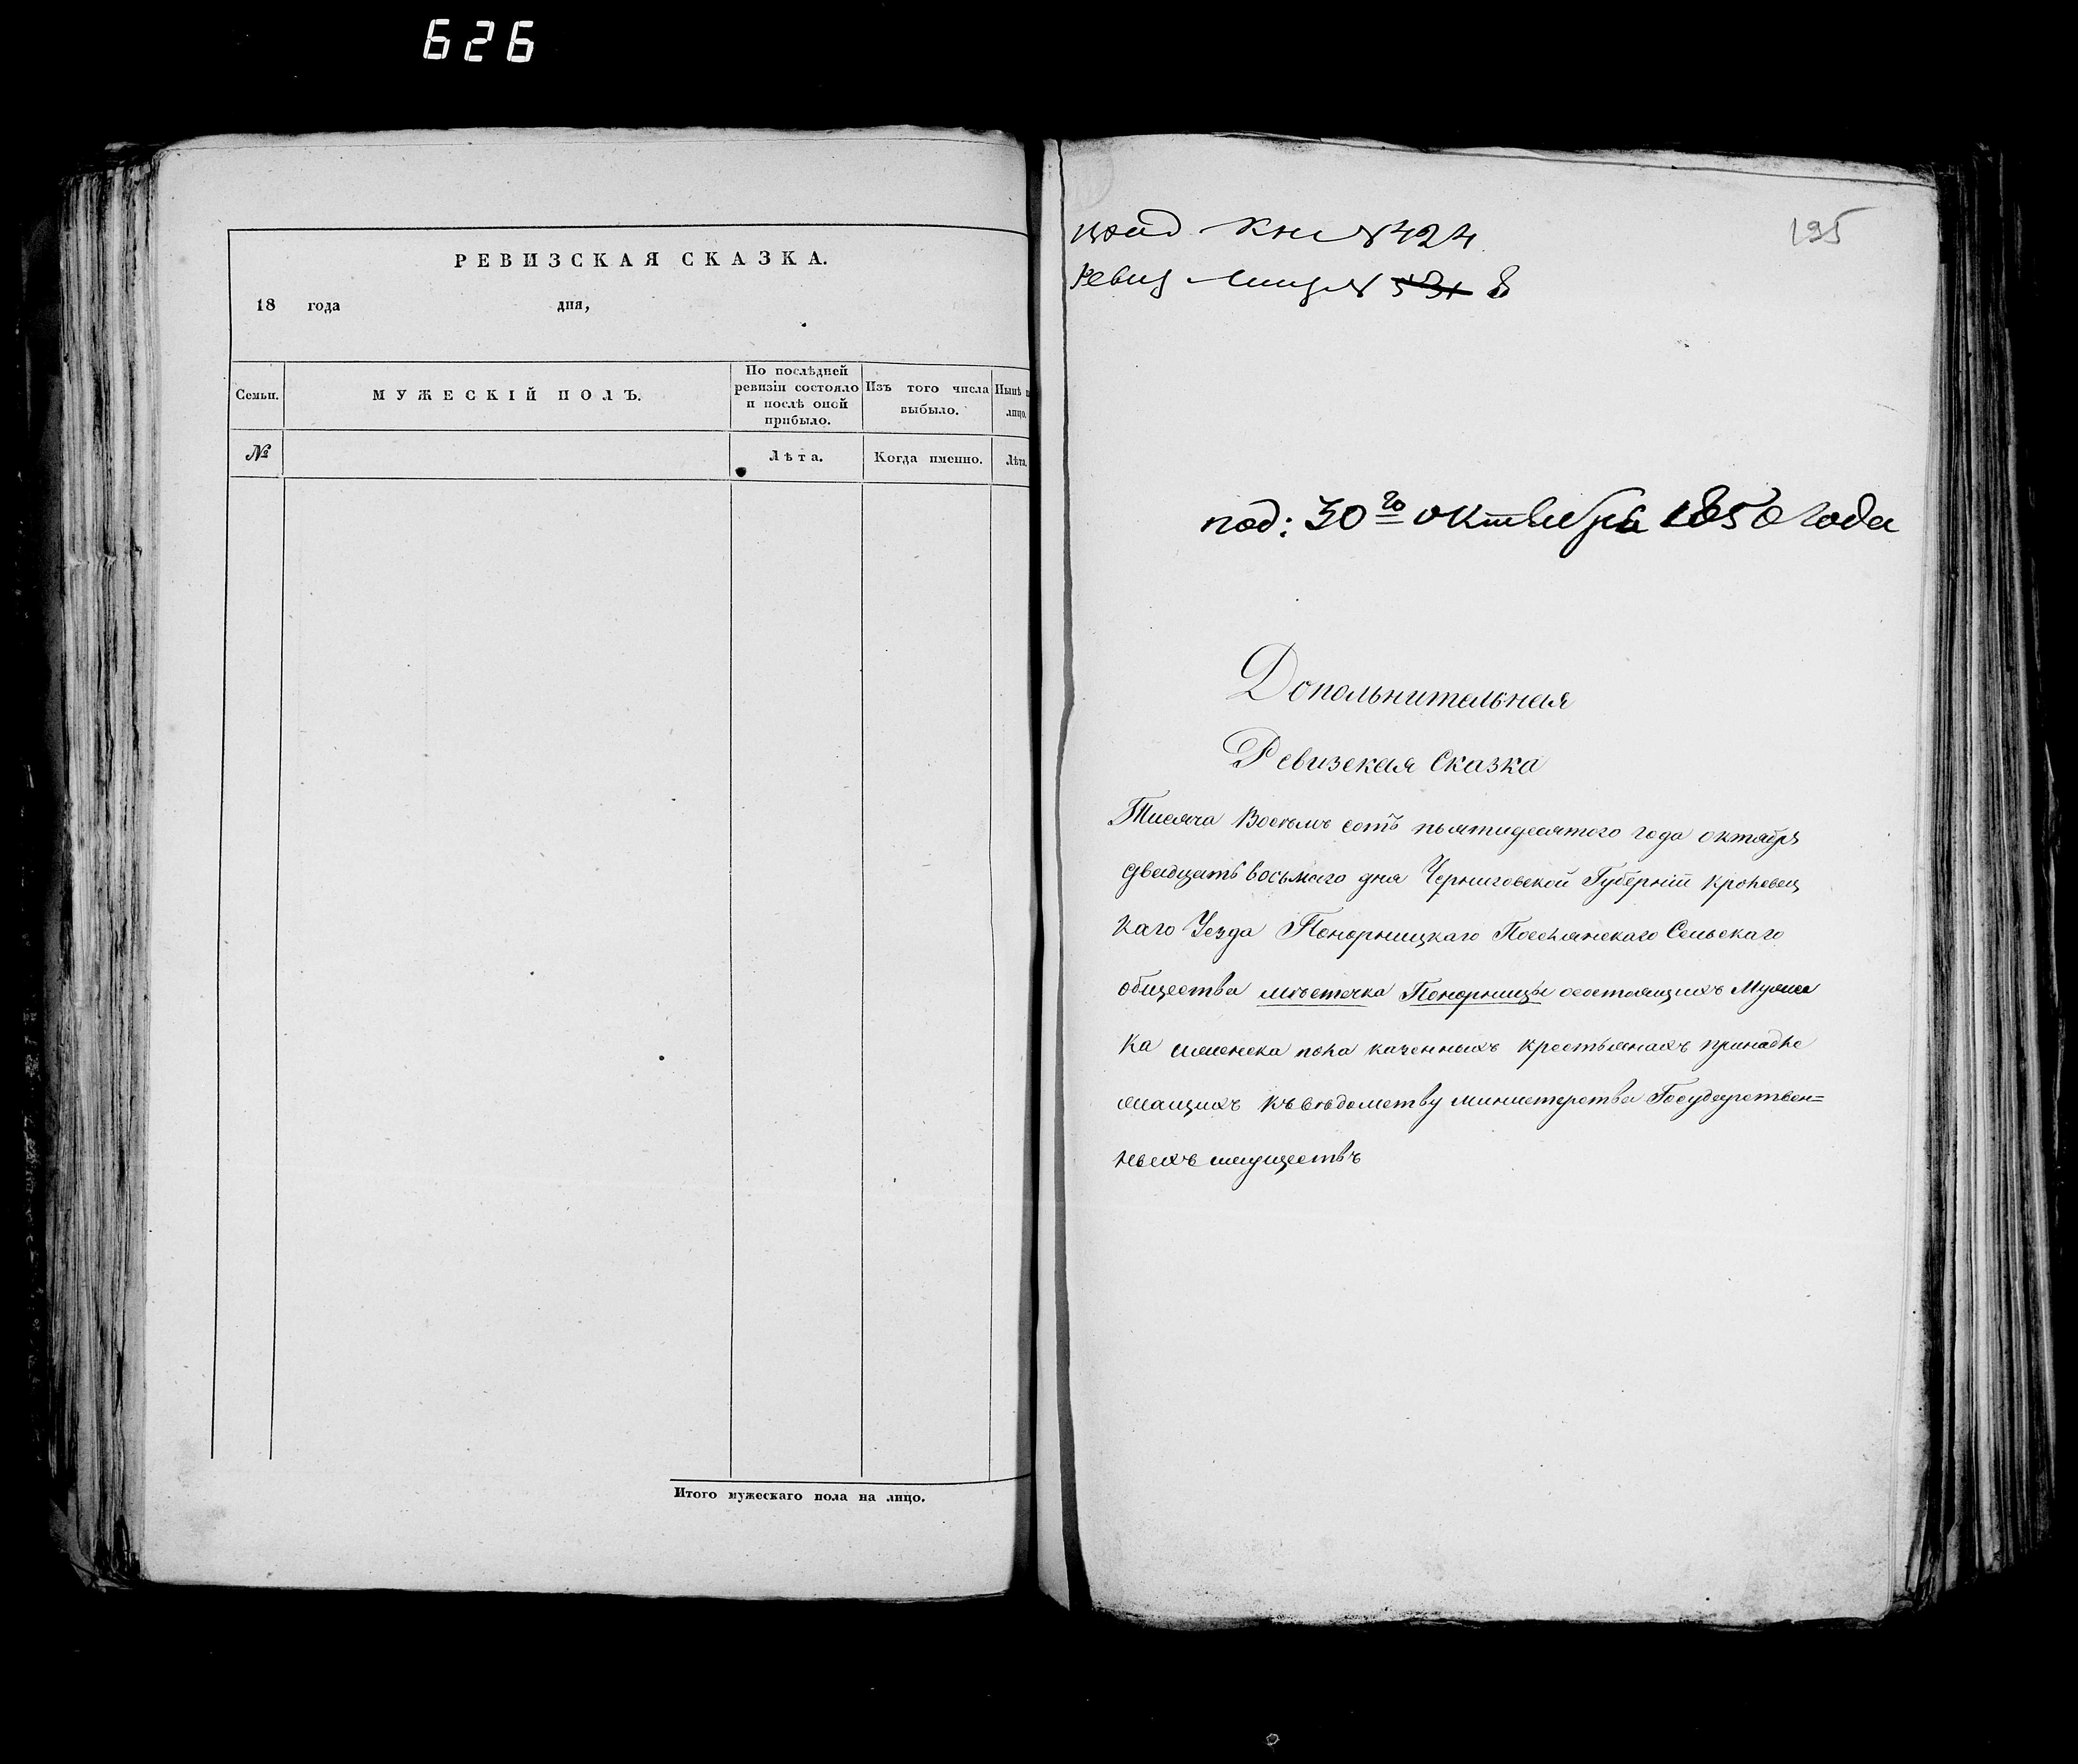 626
РЕВИЗСКАЯ СКАЗКА.
18 года дня,
Семьи.
МУЖЕСКІЙ ПОЛЪ.
По послѣдней
ревизіи состояло
и послѣ оной
прибыло.
Изъ того числа
выбыло.
Нынѣ н
лицо.
№
Лѣта.
Когда именно.
Лѣта.
Итого мужескаго пола на лицо.
195
Кни № 424
Ревиз № 531 8
под: 30го октября 1850 года
Допольнительная
Ревизская Сказка
Тисяча Восемь сотъ пьятидесятого года октябр
двадцать восьмаго дня Черниговской Губерніи Кролевец
каго Уезда Понорницкаго Поселянскаго Сельскаго
общества мѣстечка Понорницы состоящихъ Мужес
ка женска пола казенныхъ крестьянахъ принадле
жащихъ къ вѣдомству министерства Государствен=
ныхъ имуществъ